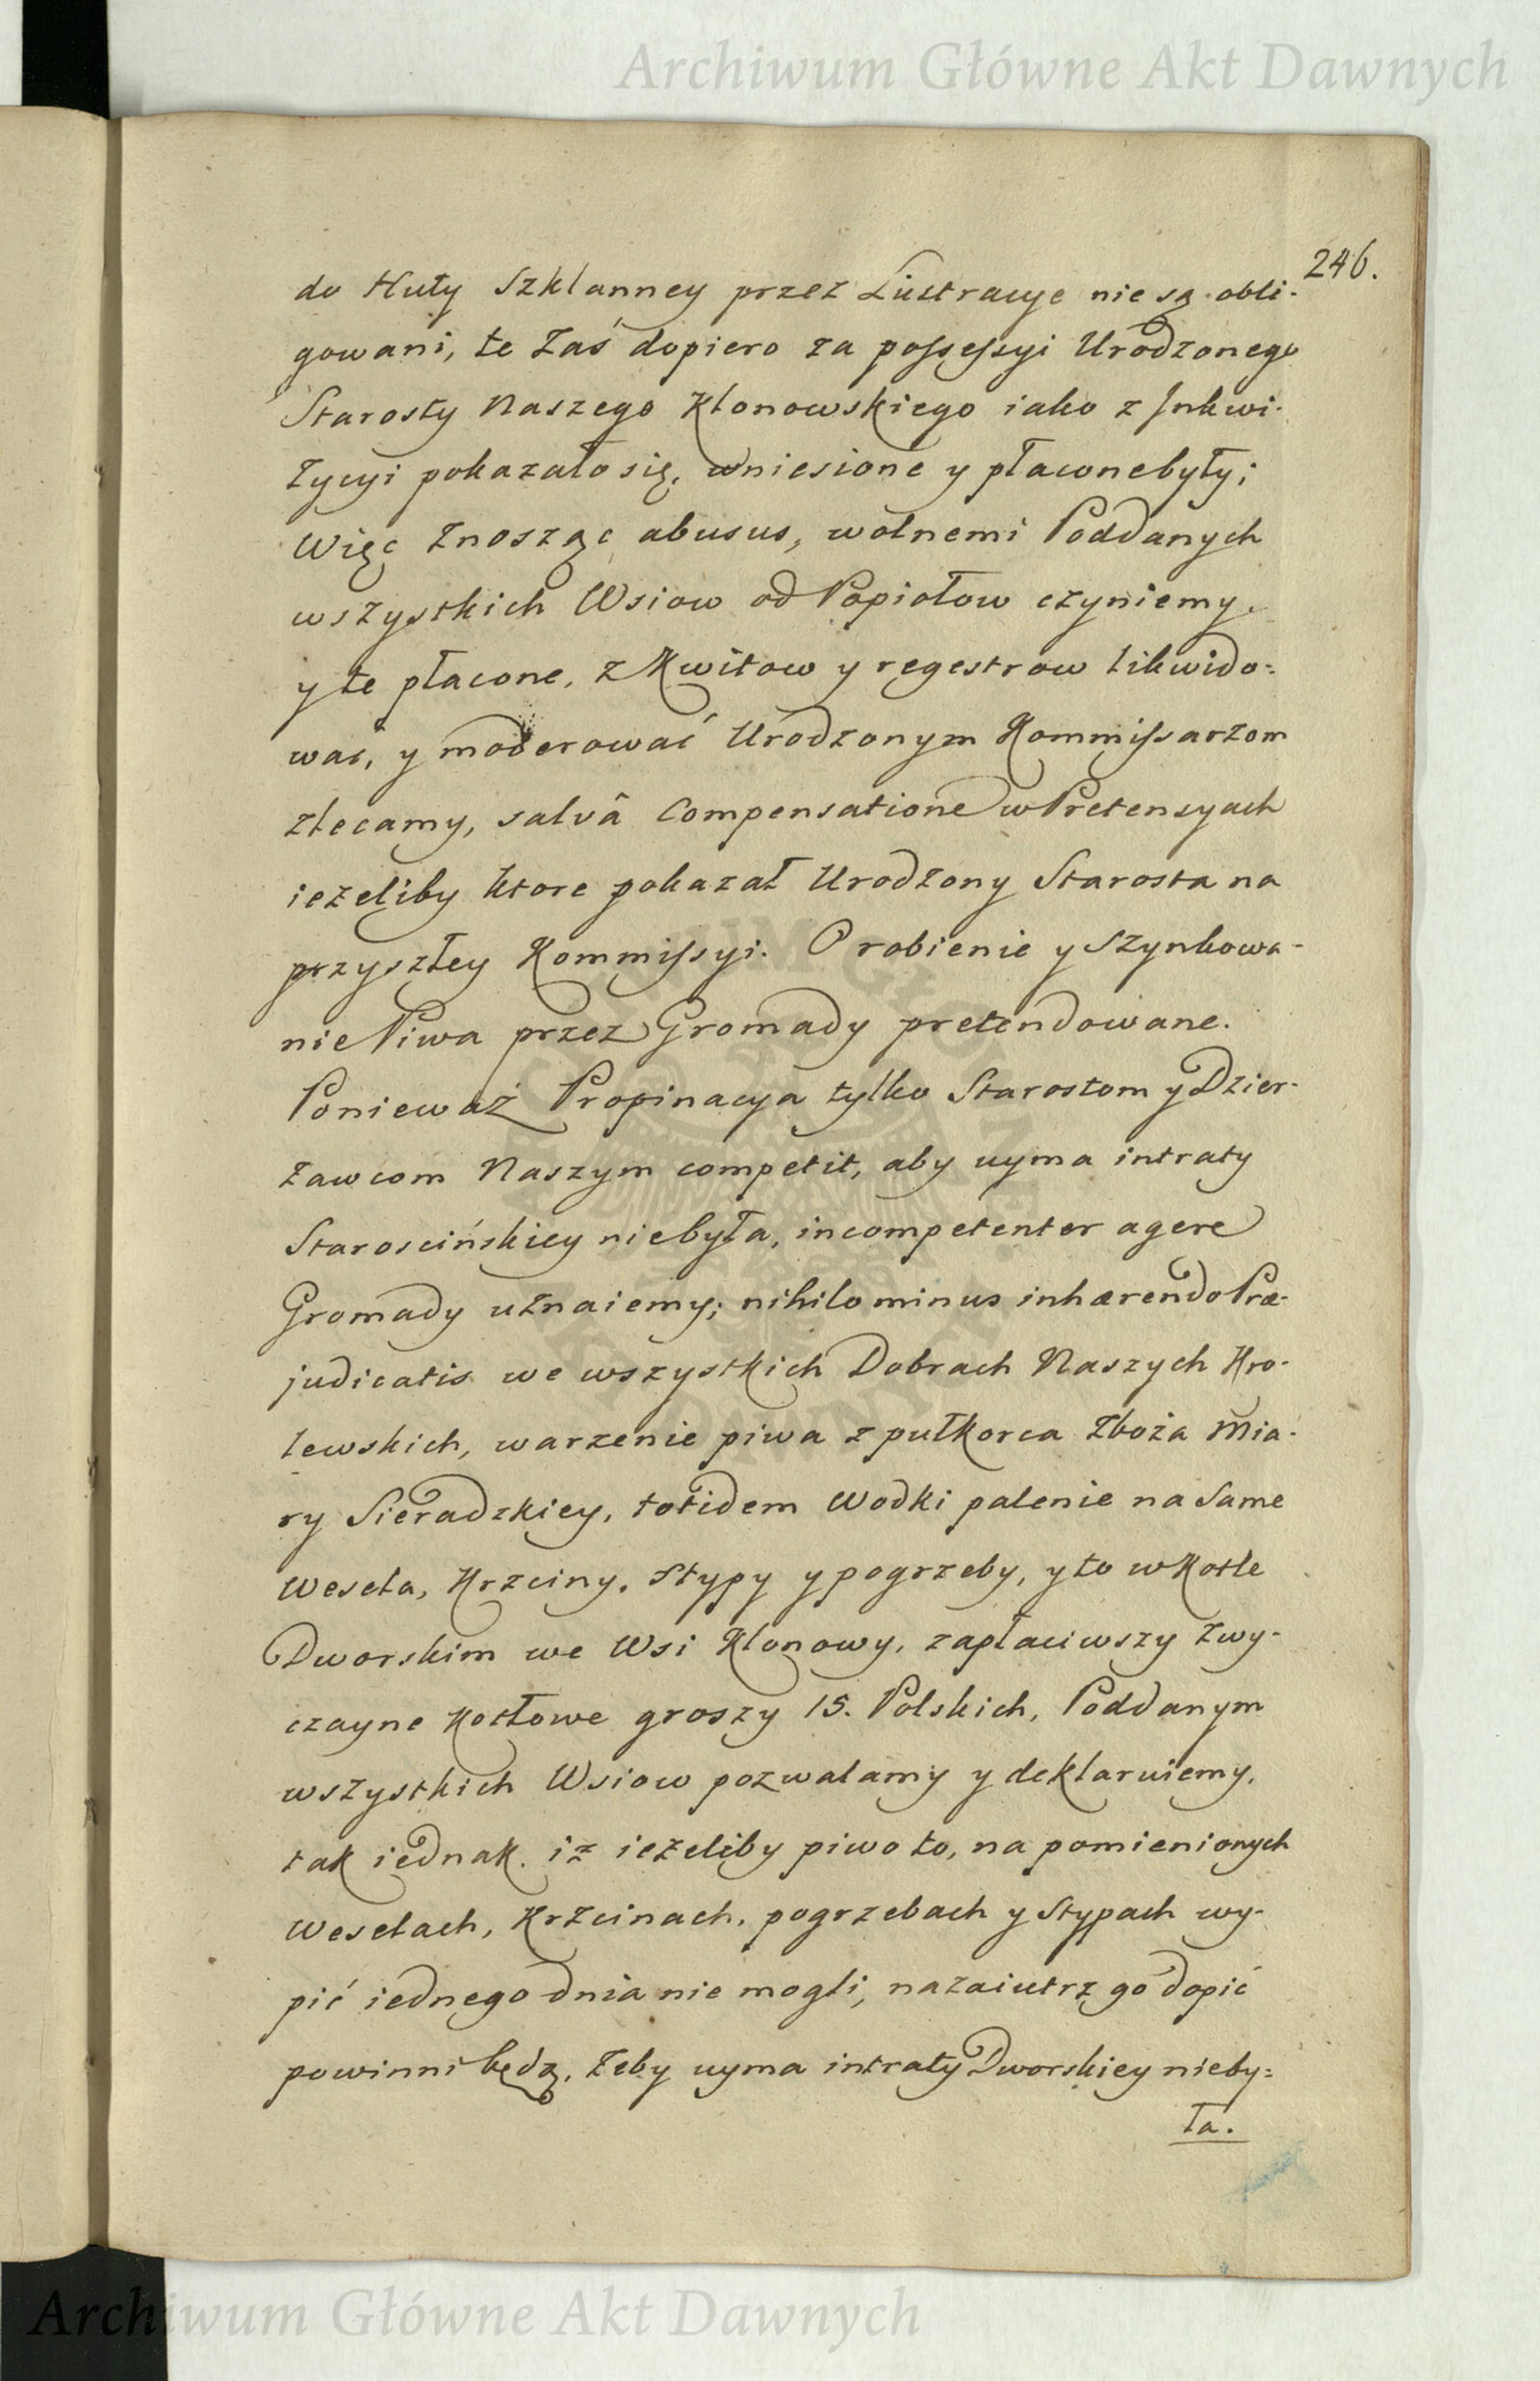 Archiwum Główne Akt Dawnych
246.
do Huty Szklanney przez Lustracye nie są obli-
gowani, te zaś dopiero za possessyi Urodzonego
Starosty Naszego Klonowskiego iako z Jnkwi-
zycyi pokazało się, wniesione y płacone były;
Więc znosząc abusus, wolnemi Poddanych
wszystkich Wsiow od Popiołow czyniemy,
y te płacone, z Kwitow y regestrow likwido-
wać, y moderować Urodzonym Kommissarzom
zlecamy, salvâ Compensatione w Pretensyach
ieżeliby ktore pokazał Urodzony Starosta na
przyszłey Kommissyi. O robienie y Szynkowa-
nie Piwa przez Gromady pretendowane.
Ponieważ Propinacya tylko Starostom y Dzier-
żawcom Naszym competit, aby uyma intraty
Starościńskiey niebyła, incompetenter agere
Gromady uznaiemy; nihilominus inhærendo Præ-
judicatis we wszystkich Dobrach Naszych Kro-
lewskich, warzenie piwa z pułkorca zboża Mia-
ry Sieradzkiey, totidem Wodki palenie na Same
Wesela, Krzciny, Stypy y pogrzeby, y to w Kotle
Dworskim we Wsi Klonowy, zapłaciwszy zwy-
czayne Kotłowe groszy 15. Polskich, Poddanym
wszystkich Wsiow pozwalamy y deklaruiemy,
tak iednak. iż ieżeliby piwo to, na pomienionych
Weselach, Krzcinach, pogrzebach y Stypach wy-
pić iednego dnia nie mogli, nazaiutrz go dopić
powinni będą, żeby uyma intraty Dworskiey nieby=
ła.
Archiwum Główne Akt Dawnych